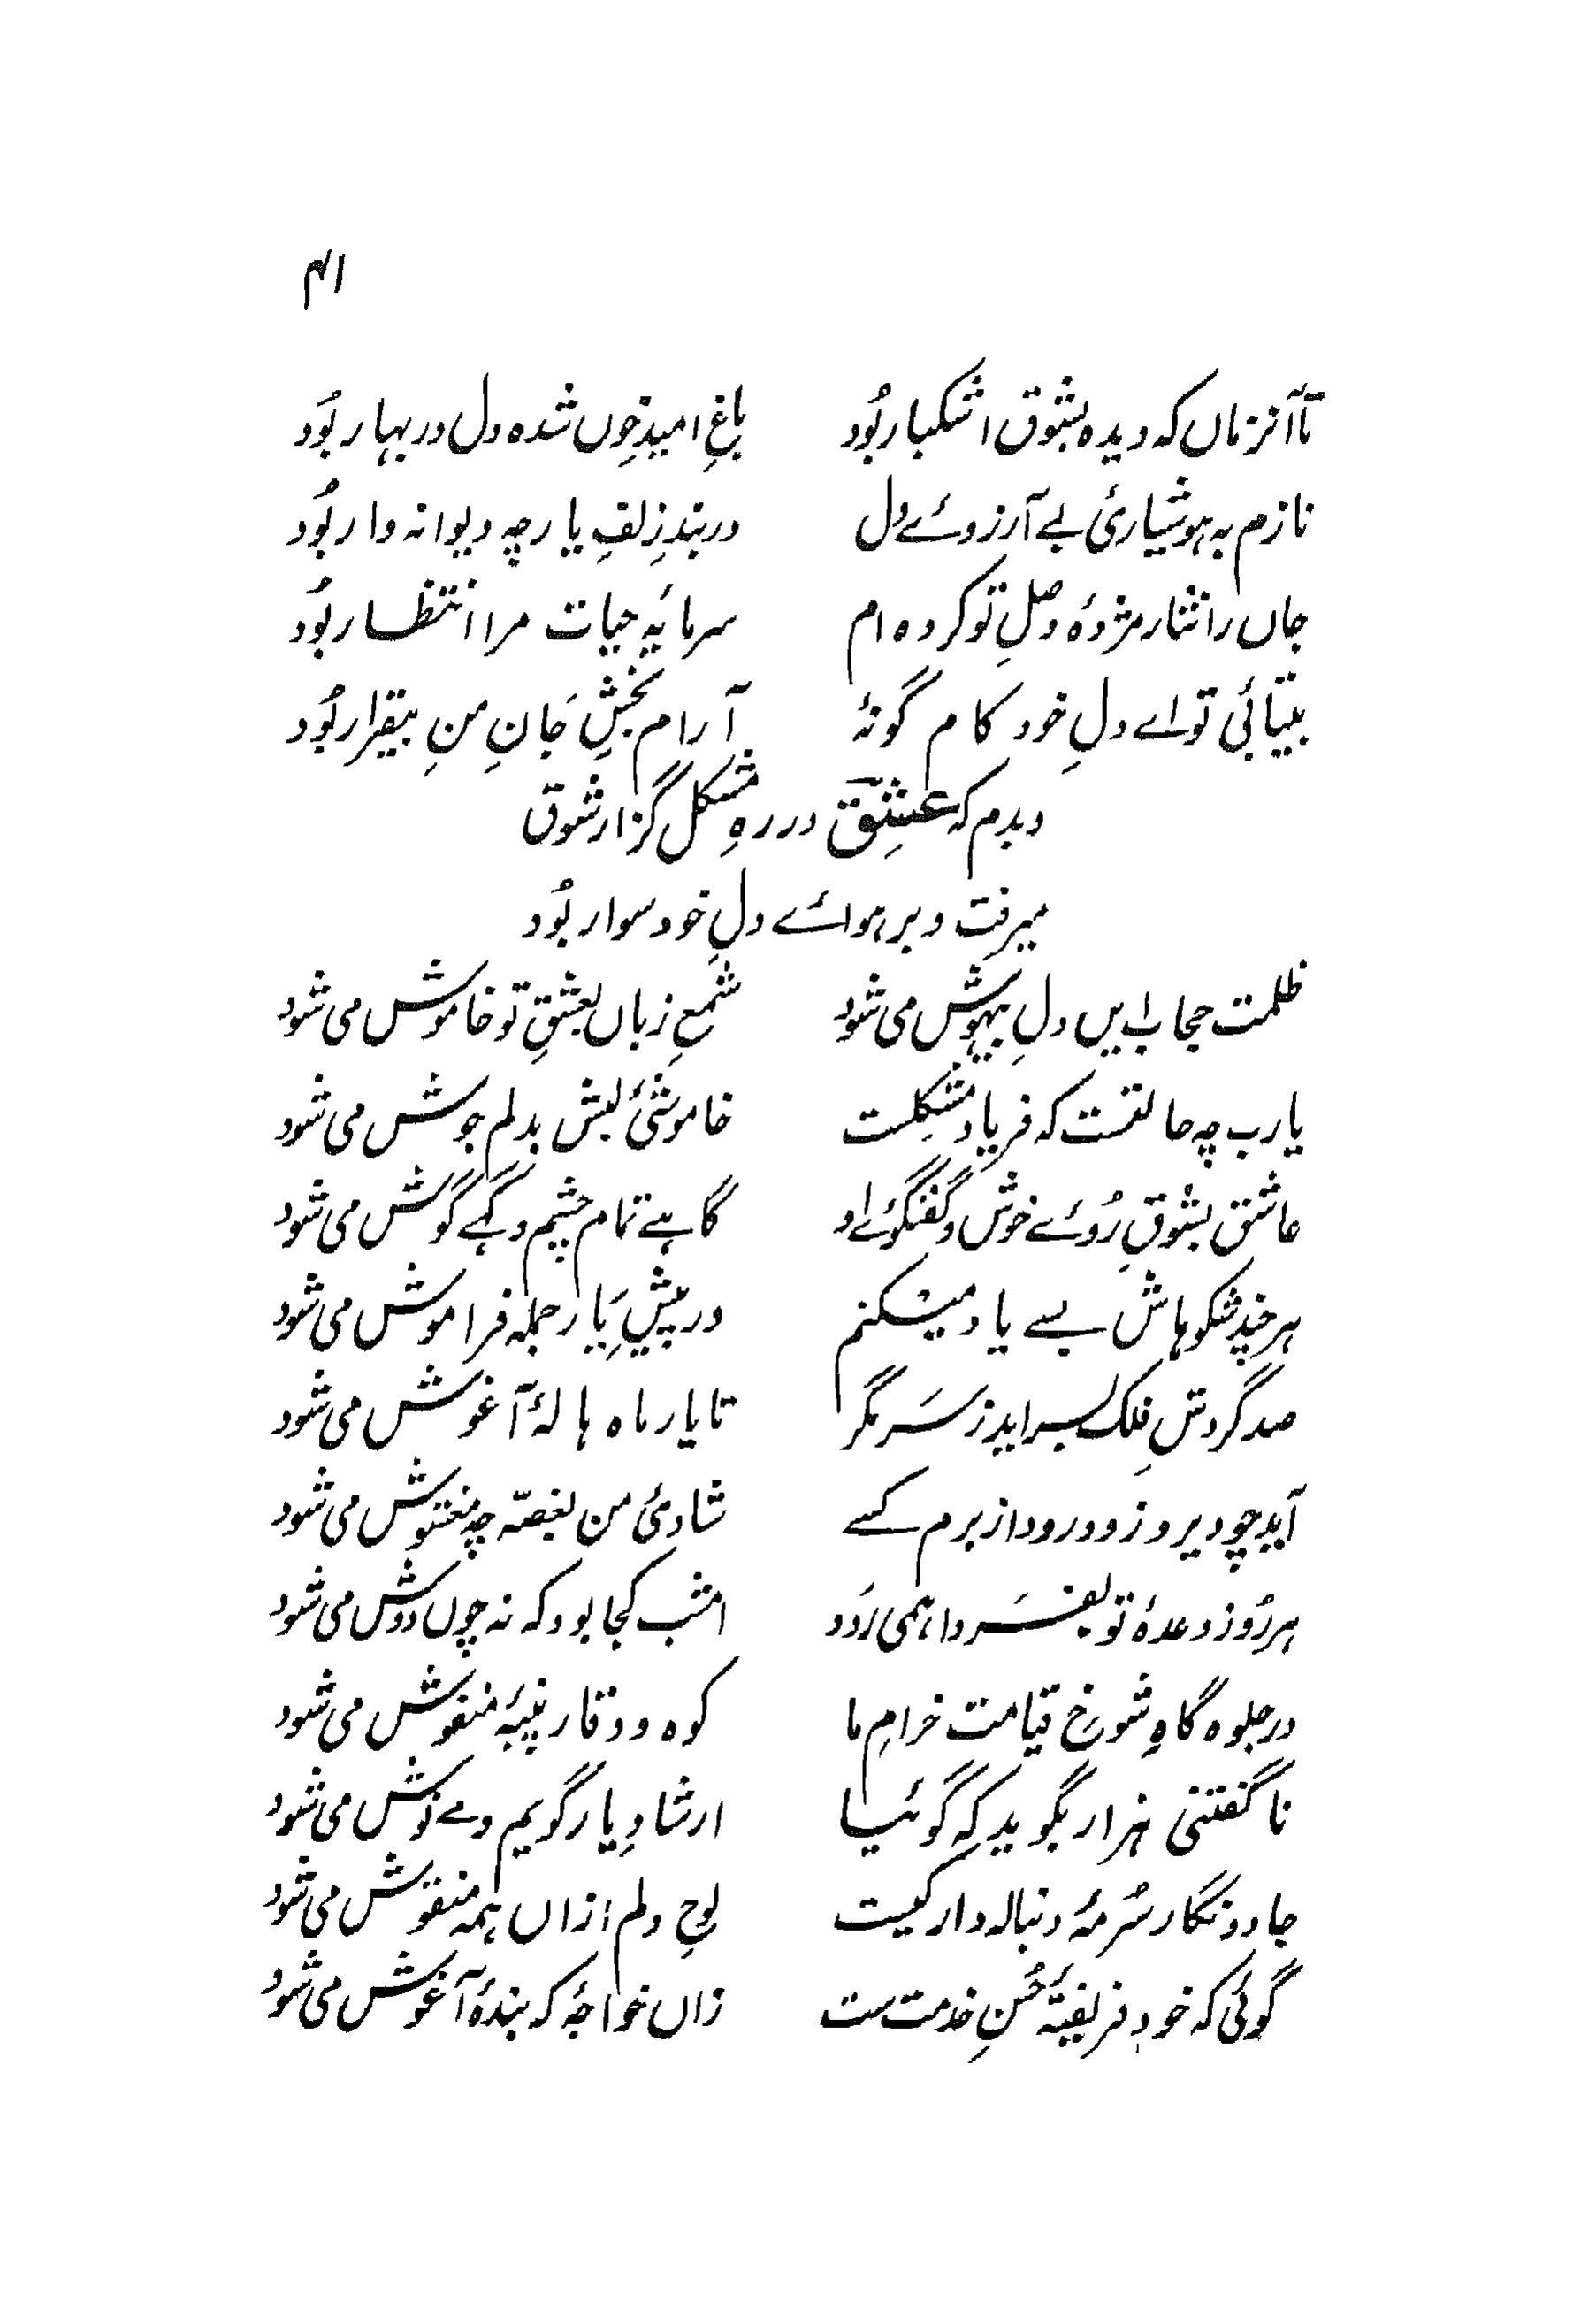 ۴۱
تا آنزماں کہ دیدہ بشوق اشکبار بُود باغِ امیدِ خوں شدہ دل در بہار بُود
نازم بہ ہوشیاریٔ بے آرزوئے دل در بندِ زلفِ یار چہ دیوانہ وار بُود
جاں را نثار مژدۂ وصلِ تو کردہ ام سرمایۂ حیات مرا انتظار بُود
بیتابیٔ تو اے دلِ خود کام گونۂ آرام بخشِ جَانِ منِ بیقرار بُود
دیدم کہ عشِقؔ در رہِ مشکل گزار شوق
میرفت و بر ہوائے دلِ خود سوار بُود
ظلمت حجاب ایں دلِ بیہوش می شود شمعِ زباں بعشقِ تو خاموش می شود
یارب چہ حالتست کہ فریاد مشکِلست خاموشیٔ لبش بدلم جوش می شود
عاشق بشوقِ رُوئے خوش و گفتگوئے او گاہے تمام چشم و گہے گوش می شود
ہر چند شکوہاش بسے یاد میکنم در پیشِ یَار جملہ فراموش می شود
صد گردشِ فلک بسر اید ز سَر مگر تا یار ماہ ہالۂ آغوش می شود
آید چو دیر و زود رود از برم کسے شادیٔ من بغصّہ چہ مغشوش می شود
ہر رُوز وعدۂ تو بفَردا ہمی رَود امشب کجا بود کہ نہ چوں دوش می شود
در جلوہ گاہِ شوخ قیامت خرامِ ما کوہ و وقار پنبۂ منفوش می شود
ناگفتنی ہزار بگوید کہ گوئیا ارشادِ یار گویم و مے نوش می شود
جادو نگار سُرمۂ دنبالہ دار کیست لوحِ دلم ازاں ہمہ منقوش می شود
گوئی کہ خود فریفتۂ حُسنِ خدمت ست زاں خواجۂ کہ بندۂ آغوش می شود